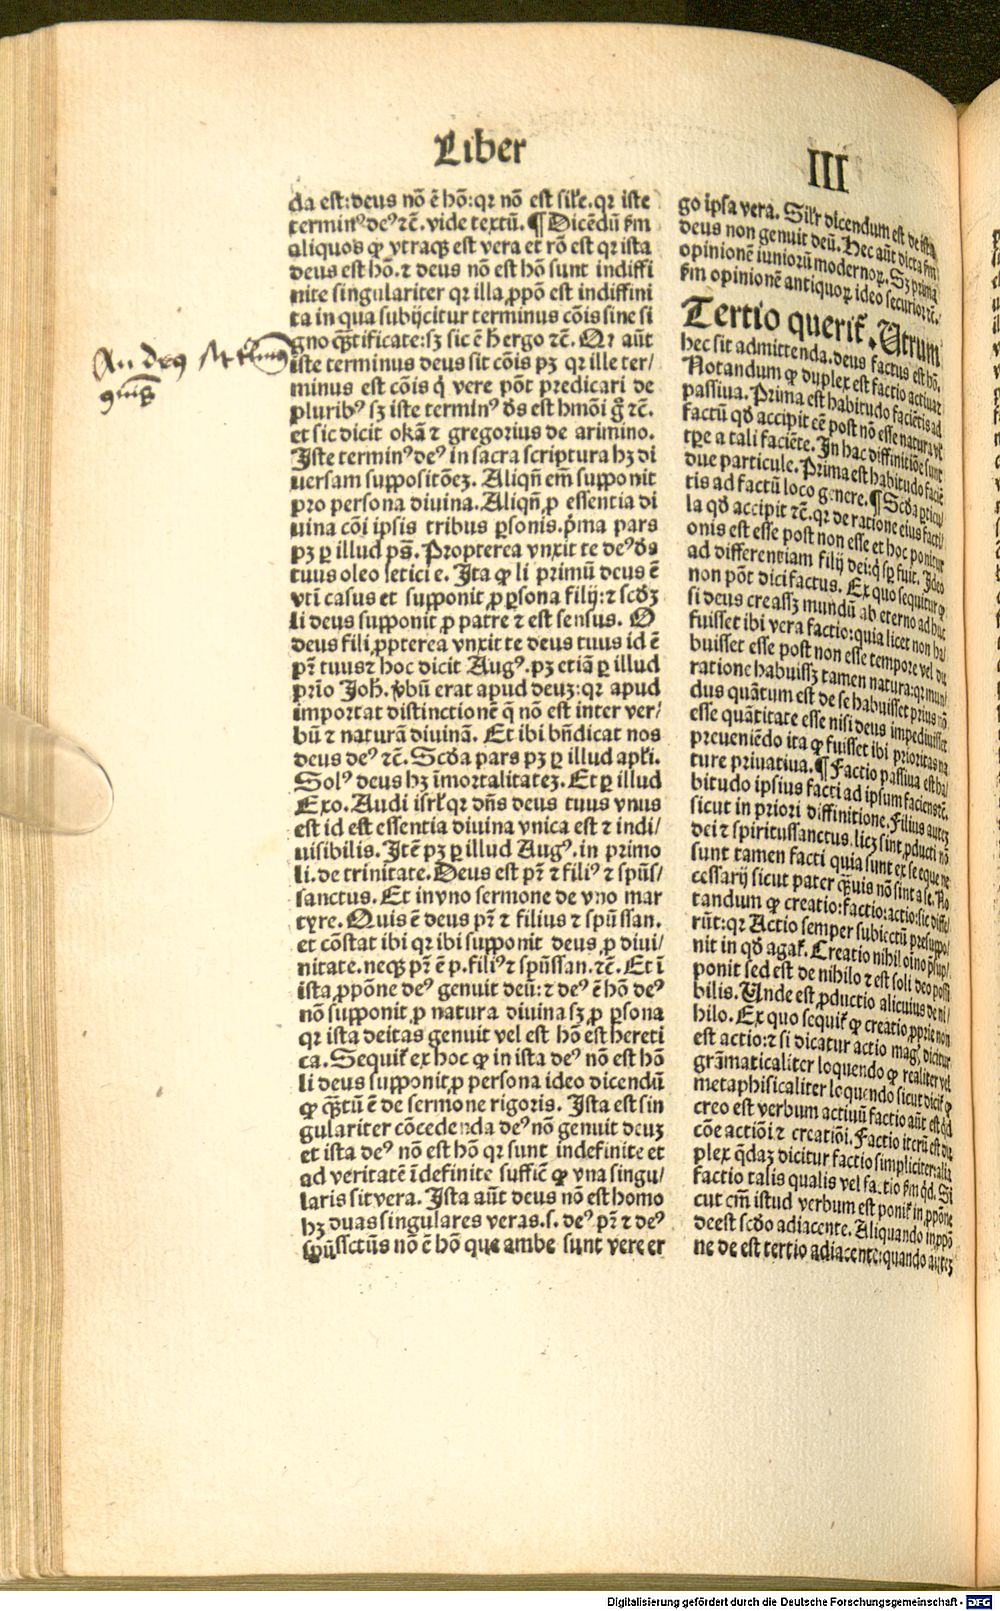 Liber
III
da est: deus nõ ẽ hõ: qꝛ nõ est sile. qꝛ iste
terminꝰ deꝰ ⁊c̃. vide textũ. ¶ Dicẽdũ ẜm
aliquos ꝙ vtraqꝫ est vera et rõ est qꝛ ista
deus est hõ. ⁊ deus nõ est hõ sunt indiffi
nite singulariter qꝛ illa ꝓpõ est indiffini
ta in qua subijcitur terminus cõis sine si
gno quãtificate: sꝫ sic ẽ h̃ ergo ⁊c̃. Qꝛ aũt
iste terminus deus sit cõis pꝫ qꝛ ille ter/
minus est cõis q̇ vere põt predicari de
pluribꝰ sꝫ iste terminꝰ ds̃ est hmõi g̃ ⁊c̃.
et sic dicit okã ⁊ gregorius de arimino.
Iste terminꝰ deꝰ in sacra scriptura hꝫ di
uersam suppositõeꝫ. Aliqñ em̃ supponit
pro persona diuina. Aliqñ ꝓ essentia di
uina cõi ipsis tribus ꝑsonis. p̃ma pars
pꝫ ꝑ illud ps̃. Propterea vnxit te deꝰ ds̃
tuus oleo leticie. Ita ꝙ li primũ deus ẽ
vtĩ casus et supponit ꝓ ꝑsona filij: ⁊ scdꝫ
li deus supponit ꝓ patre ⁊ est sensus. O
deus fili ꝓpterea vnxit te deus tuus id ẽ
pr̃ tuus⁊ hoc dicit Augꝰ. pꝫ etiã ꝑ illud
prĩo Joh̃. v̇bũ erat apud deuꝫ: qꝛ apud
importat distinctionẽ q̃ nõ est inter ver/
bũ ⁊ naturã diuinã. Et ibi bñdicat nos
deus deꝰ ⁊c̃. Scd̃a pars pꝫ ꝑ illud apli.
Solꝰ deus hꝫ ĩmortalitateꝫ. Et ꝑ illud
Exo. Audi isrl̃ qꝛ dñs deus tuus vnus
est id est essentia diuina vnica est ⁊ indi/
uisibilis. Itẽ pꝫ ꝑ illud Augꝰ. in primo
li. de trinitate. Deus est pr̃ ⁊ filiꝰ ⁊ spũs/
sanctus. Et in vno sermone de vno mar
tyre. Quis ẽ deus pr̃ ⁊ filius ⁊ spũssan.
et cõstat ibi qꝛ ibi supponit deus ꝓ diui/
nitate. neqꝫ pr̃ ẽ p. filiꝰ ⁊ spũssan. ⁊c̃. Et ĩ
ista ꝓpõne deꝰ genuit deũ: ⁊ deꝰ ẽ hõ deꝰ
nõ supponit ꝓ natura diuina sꝫ ꝓ ꝑsona
qꝛ ista deitas genuit vel est hõ est hereti
ca. Sequit̃ ex hoc ꝙ in ista deꝰ nõ est hõ
li deus supponit ꝓ persona ideo dicendũ
ꝙ quãtũ ẽ de sermone rigoris. Ista est sin
gulariter cõcedenda deꝰ nõ genuit deuꝫ
et ista deꝰ nõ est hõ qꝛ sunt indefinite et
ad veritatẽ ĩdefinite suffic̃ ꝙ vna singu/
laris sit vera. Ista aũt deus nõ est homo
hꝫ duas singulares veras. s. deꝰ pr̃ ⁊ deꝰ
spũssctũs nõ ẽ hõ que ambe sunt vere er
go ipsa vera. Silr̃ dicendum est de ista
deus non genuit deũ. Hec aũt dicta ẜm
opinionẽ iuniorũ modernoꝝ. Sꝫ prima
ẜm opinionẽ antiquoꝝ ideo securior ⁊c̃.
Tertio querit̃. Utrum
hec sit admittenda. deus factus est hõ.
Notandum ꝙ duplex est factio actiua⁊
passiua. Prima est habitudo faciẽtis ad
factũ qd̃ accipit eẽ post nõ esse natura vł
tp̃e a tali faciẽte. In hac diffinitiõe sunt
due particule. Prima est habitudo faciẽ
tis ad factũ loco genere. ¶ Scd̃a ꝑticu/
la qd̃ accipit ⁊c̃. qꝛ de ratione eius facti/
onis est esse post non esse et hoc ponitur
ad differentiam filij dei: q̇ sp̃ fuit. Ideo
non põt dici factus. Ex quo sequitur ꝙ
si deus creassꝫ mundũ ab eterno adhuc
fuisset ibi vera factio: quia licet non ha/
buisset esse post non esse tempore vel du
ratione habuissꝫ tamen natura: qꝛ mun/
dus quãtum est de se habuisset prius nõ
esse quã̃titate esse nisi deus impediuisset
preueniẽdo ita ꝙ fuisset ibi prioritas na
ture priuatiua. ¶ Factio passiua est ha/
bitudo ipsius facti ad ipsum faciens⁊c̃.
sicut in priori diffinitione. Filius auteꝫ
dei ⁊ spiritussanctus. licꝫ sint ꝓducti nõ
sunt tamen facti quia sunt ex se eque ne
cessarij sicut pater quãuis nõ sint a se. No
tandum ꝙ creatio: factio: actio: sic diffe/
rũt: qꝛ Actio semper subiectũ presuppo/
nit in qd̃ agat̃. Creatio nihil oĩno p̃sup/
ponit sed est de nihilo ⁊ est soli deo possi
bilis. Unde est ꝓductio alicuius de ni/
hilo. Ex quo sequit̃ ꝙ creatio ꝓprie non
est actio: ⁊ si dicatur actio magꝭ dicitur
grãmaticaliter loquendo ꝙ realiter vel
metaphisicaliter loquendo sicut dicit̃ ꝙ
creo est verbum actiuũ factio aũt est qd̃
cõe actiõi ⁊ creatiõi. Factio iterũ est du
plex q̃daꝫ dicitur factio simpliciter: alia
factio talis qualis vel factio ẜm qd̃. Si
cut em̃ istud verbum est ponit̃ in ꝓpõne
de est scd̃o adiacente. Aliquando in ꝓpõ
ne de est tertio adiacente: quando auteꝫ
Digitalisierung gefördert durch die Deutsche Forschungsgemeinschaft - DFG